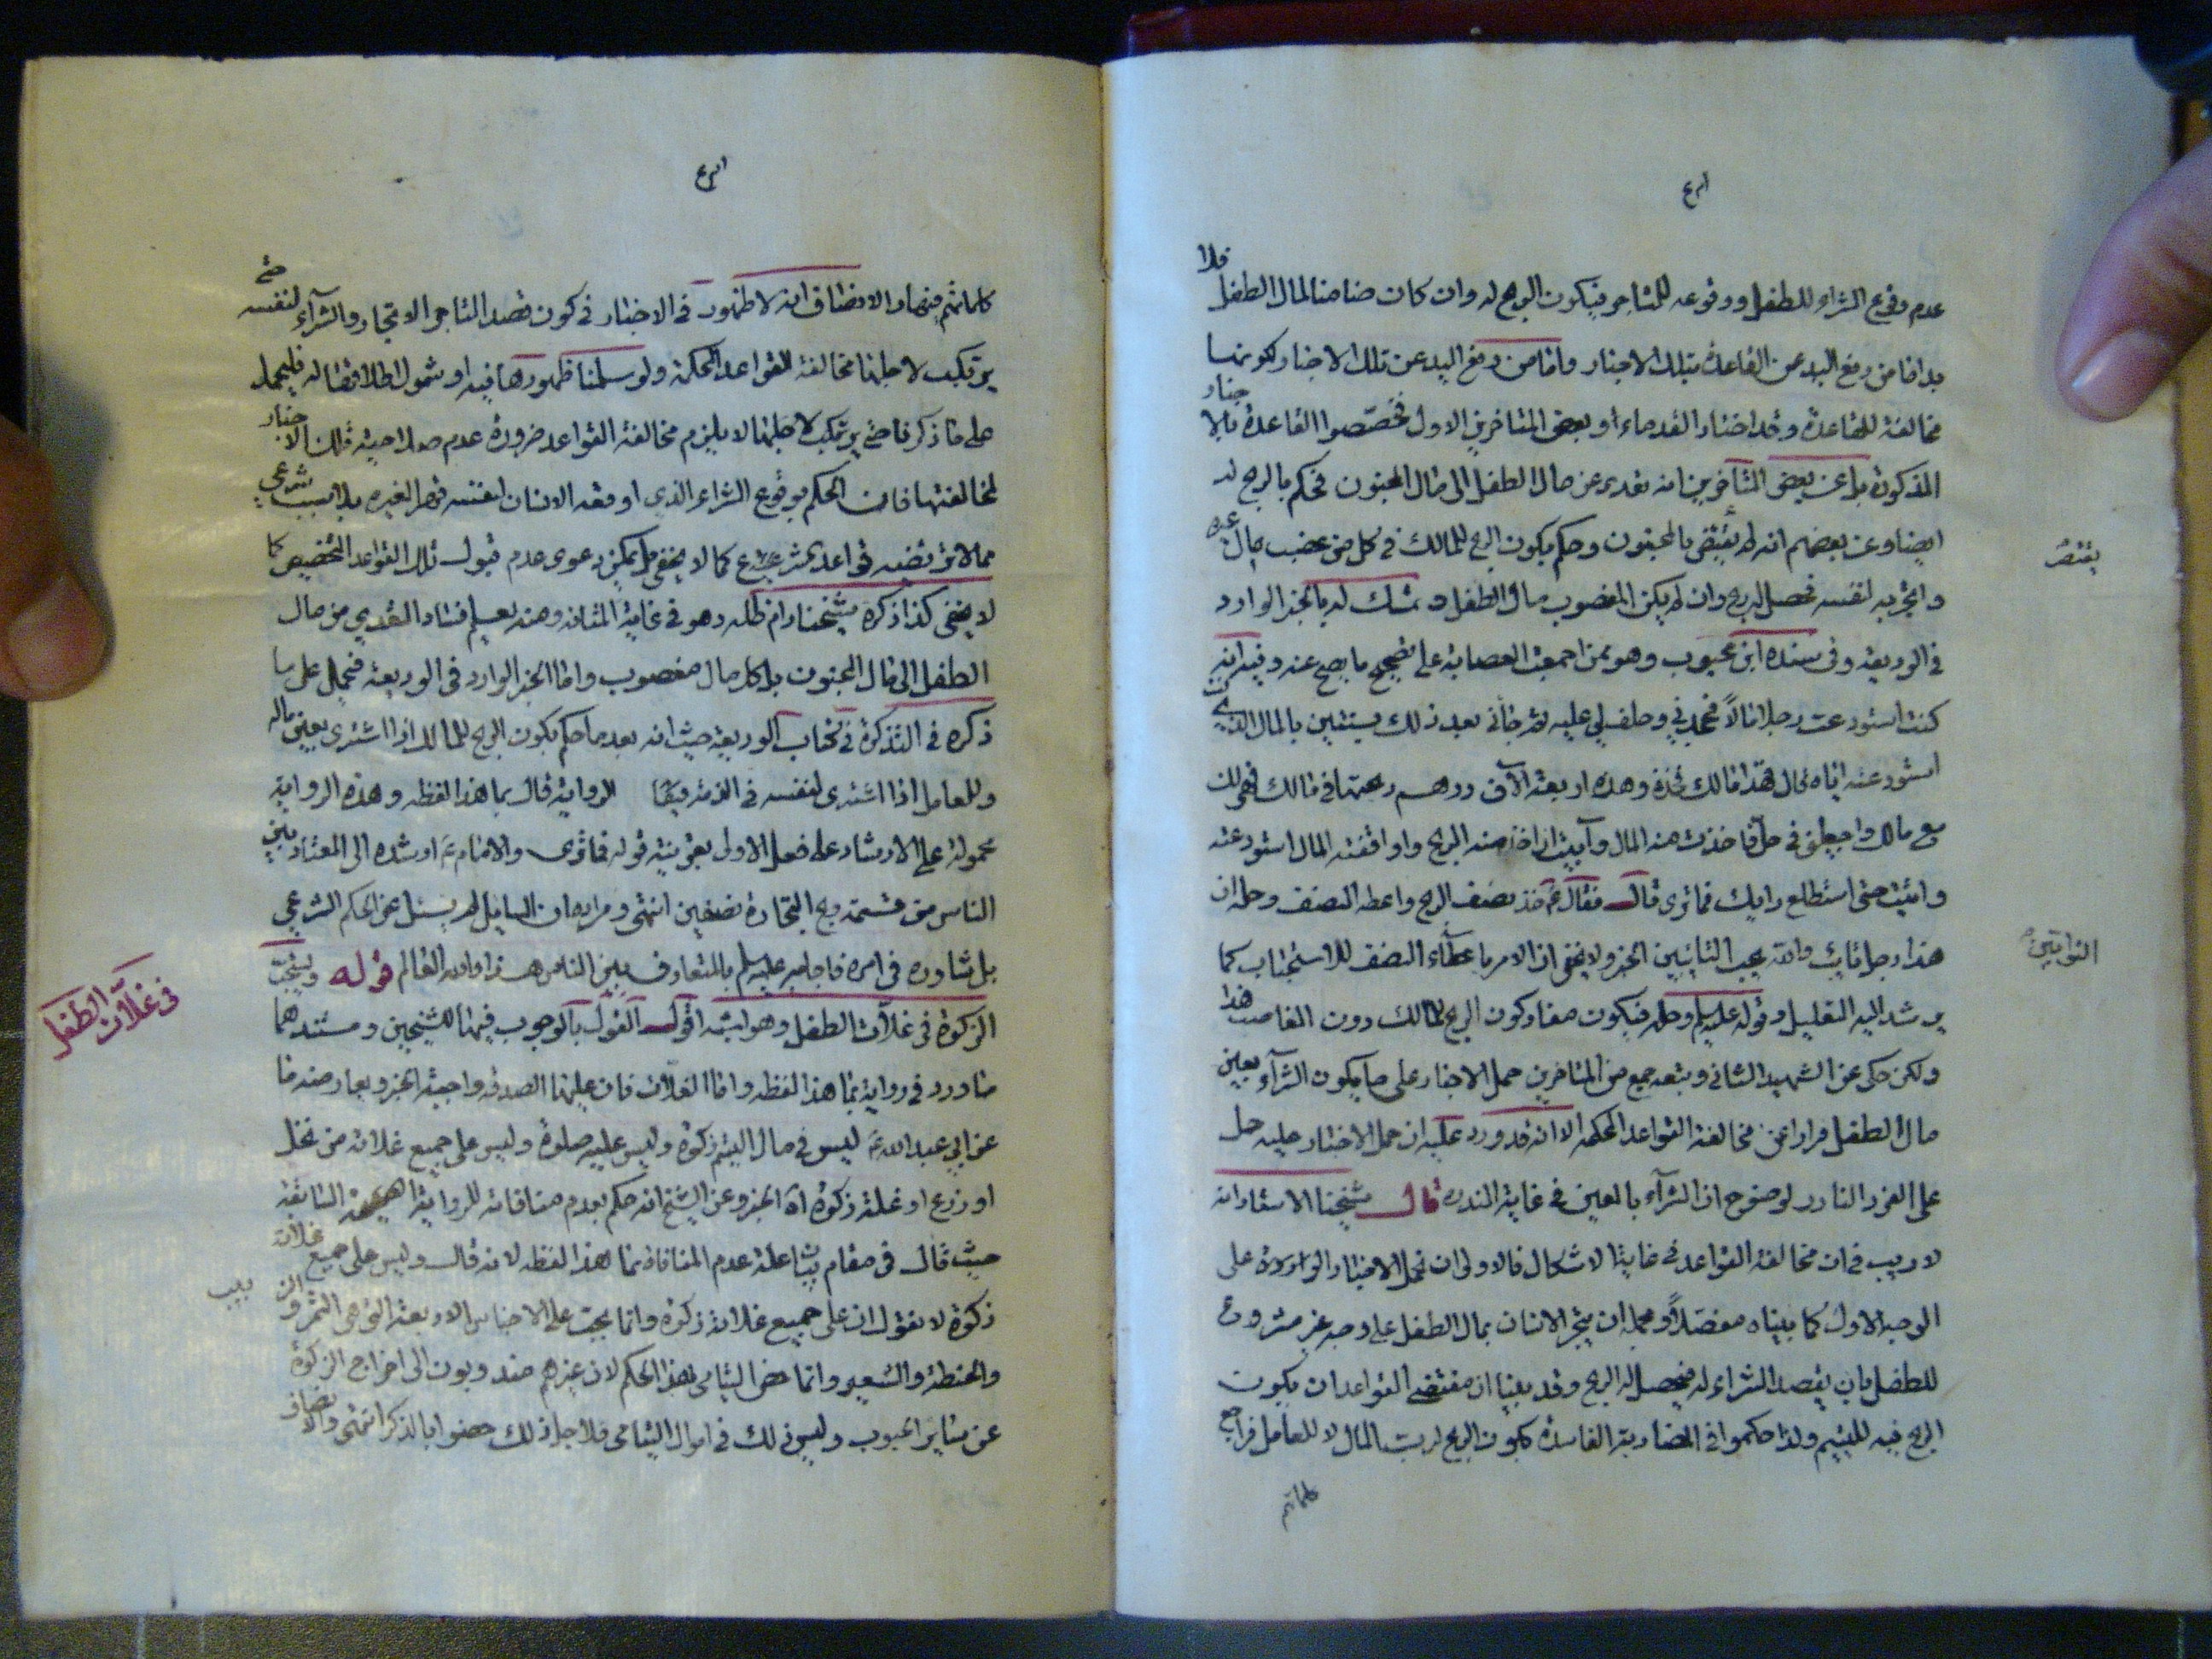 عدم وقوع الشراء للطفل ووقوعه للتاجر فيكون الربح له وان كان ضامنا لمال الطفل فلا
بد اما من رفع اليد عن القاعدة بتلك الاخبار واما من رفع اليد عن تلك الاخبار لكونها
مخالفة للقاعدة وقد اختار القدماء او بعض المتاخرين الاول فخصّصوا القاعدة بالاخبار
المذكورة بل عن بعض المتاخرين انه تعدى عن مال الطفل الى مال المجنون فحكم بالربح له
ايضا وعن بعضهم انه لم يقتصر بالمجنون وحكم بكون الربح للمالك في كل من غصب مال غيره
واتجر به لنفسه فحصل له ربح وان لم يكن المغصوب مال الطفل وتمسك له بالخبر الوارد
في الوديعة وفي سنده ابن محبوب وهو ممن اجمعت العصابة على تصحيح ما يصح عنه وفيه اني
كنت استودعت رجلا مالاً فجحدنيه وحلف لي عليه ثم جائني بعد ذلك بسنتين بالمال الذي كنت
استودعته اياه فقال هذا مالك فخذه وهذه اربعة الاف درهم ربحتها في مالك فهي لك
مع مالك واجعلني في حل فاخذت منه المال وابيت ان اخذ منه الربح واوقفت المال استودعته
واتيت حتى استطلع رايك فما ترى قال فقال ع خذ نصف الربح واعطه النصف وحله ان
هذا رجل تائب والله يحب التائبين الخبر ولا يخفى ان الامر باعطاء النصف للاستحباب كما
يرشد اليه التعليل وقوله عليه السلم وحله فيكون مفاده كون الربح للمالك دون الغاصب هذا
ولكن حكى عن الشهيد الثاني وتبعه جمع من المتاخرين حمل الاخبار على ما يكون الشرآء بعين
مال الطفل فرارا عن مخالفة القواعد المحكمة الا انه قد ورد عليه ان حمل الاخبار عليه حمل
على الفرد النادر لوضوح ان الشرآء بالعين في غاية الندرة قال شيخنا الاستاد انه
لا ريب في ان مخالفة القواعد في غاية الاشكال فالاولى ان تحمل الاخبار الواردة على
الوجه الاول كما بيناه مفصّلاً ومجمله ان يتجر الانسان بمال الطفل على وجه غير مشروع
للطفل بان يقصد الشراء له فيحصل له الربح وقد بينا ان مقتضى القواعد ان يكون
الربح فيه لليتيم ولذا حكموا في المضاربة الفاسدة بكون الربح لرب المال لا للعامل فراجع
كلماتهم
يقتصر
التوابين
كلماتهم فيها والانصاف انه لا ظهور في الاخبار في كون قصد التاجر الاتجار والشرآء لنفسه حتى
يرتكب لاجلها مخالفة القواعد المحكمة ولو سلمنا ظهورها فيه او شمول اطلاقها له فليحمل
على ما ذكرنا حتى يرتكب لاجلها لا يلزم مخالفة القواعد ضرورة عدم صلاحية تلك الاخبار
لمخالفتها فان الحكم بوقوع الشراء الذي اوقعه الانسان لنفسه قهرا لغيره بلا سبب شرعي
مما لا ترتضيه قواعد الشرع كما لا يخفى بل يمكن دعوى عدم قبول تلك القواعد التخصيص كما
لا يخفى كذا ذكره شيخنا دام ظله وهو في غاية المتانة ومنه يعلم فساد التعدي من مال
الطفل الى مال المجنون بل كل مال مغصوب واما الخبر الوارد في الوديعة فيحمل على ما
ذكره في التذكرة في كتاب الوديعة حيث انه بعد ما حكم بكون الربح للمالك اذا اشترى بعين ماله
وللعامل اذا اشترى لنفسه في الذمة الرواية قال بما هذا لفظه وهذه الرواية
محمولة على الارشاد على فعل الاولى بقرينة قوله فما ترى والامام ع ارشده الى المعتاد بين
الناس من قسمة ربح التجارة نصفين انتهى ومراده ان السايل لم يسئل عن الحكم الشرعي
بل شاوره في امره فاجابه عليه السلم بالمتعارف بين الناس هذا والله العالم قوله وتستحب
الزكوة في غلات الطفل وهو اشبه اقول القول بالوجوب فيها للشيخين ومستندهما
ما ورد في رواية بما هذا لفظه واما الغلات فان عليها الصدقة واجبة الخبر ويعارضه ما
عن ابي عبد الله ع ليس في مال اليتيم زكوة وليس عليه صلوة وليس على جميع غلاته من نخل
او زرع او غلة زكوة اه الخبر وعن الشيخ انه حكم بعدم منافاته للرواية السابقة
حيث قال في مقام بيان علة عدم المنافاة بما هذا لفظه لانه قال وليس على جميع غلاته
زكوة لا نقول ان على جميع غلاته زكوة وانما يجب على الاجناس الاربعة التي هي التمر والزبيب
والحنطة والشعير وانما خص اليتامى بهذا الحكم لان غيرهم مندوبون الى اخراج الزكوة
عن سائر الحبوب وليس ذلك في اموال اليتامى فلاجل ذلك خصوا بالذكر انتهى والانصاف
في غلات الطفل